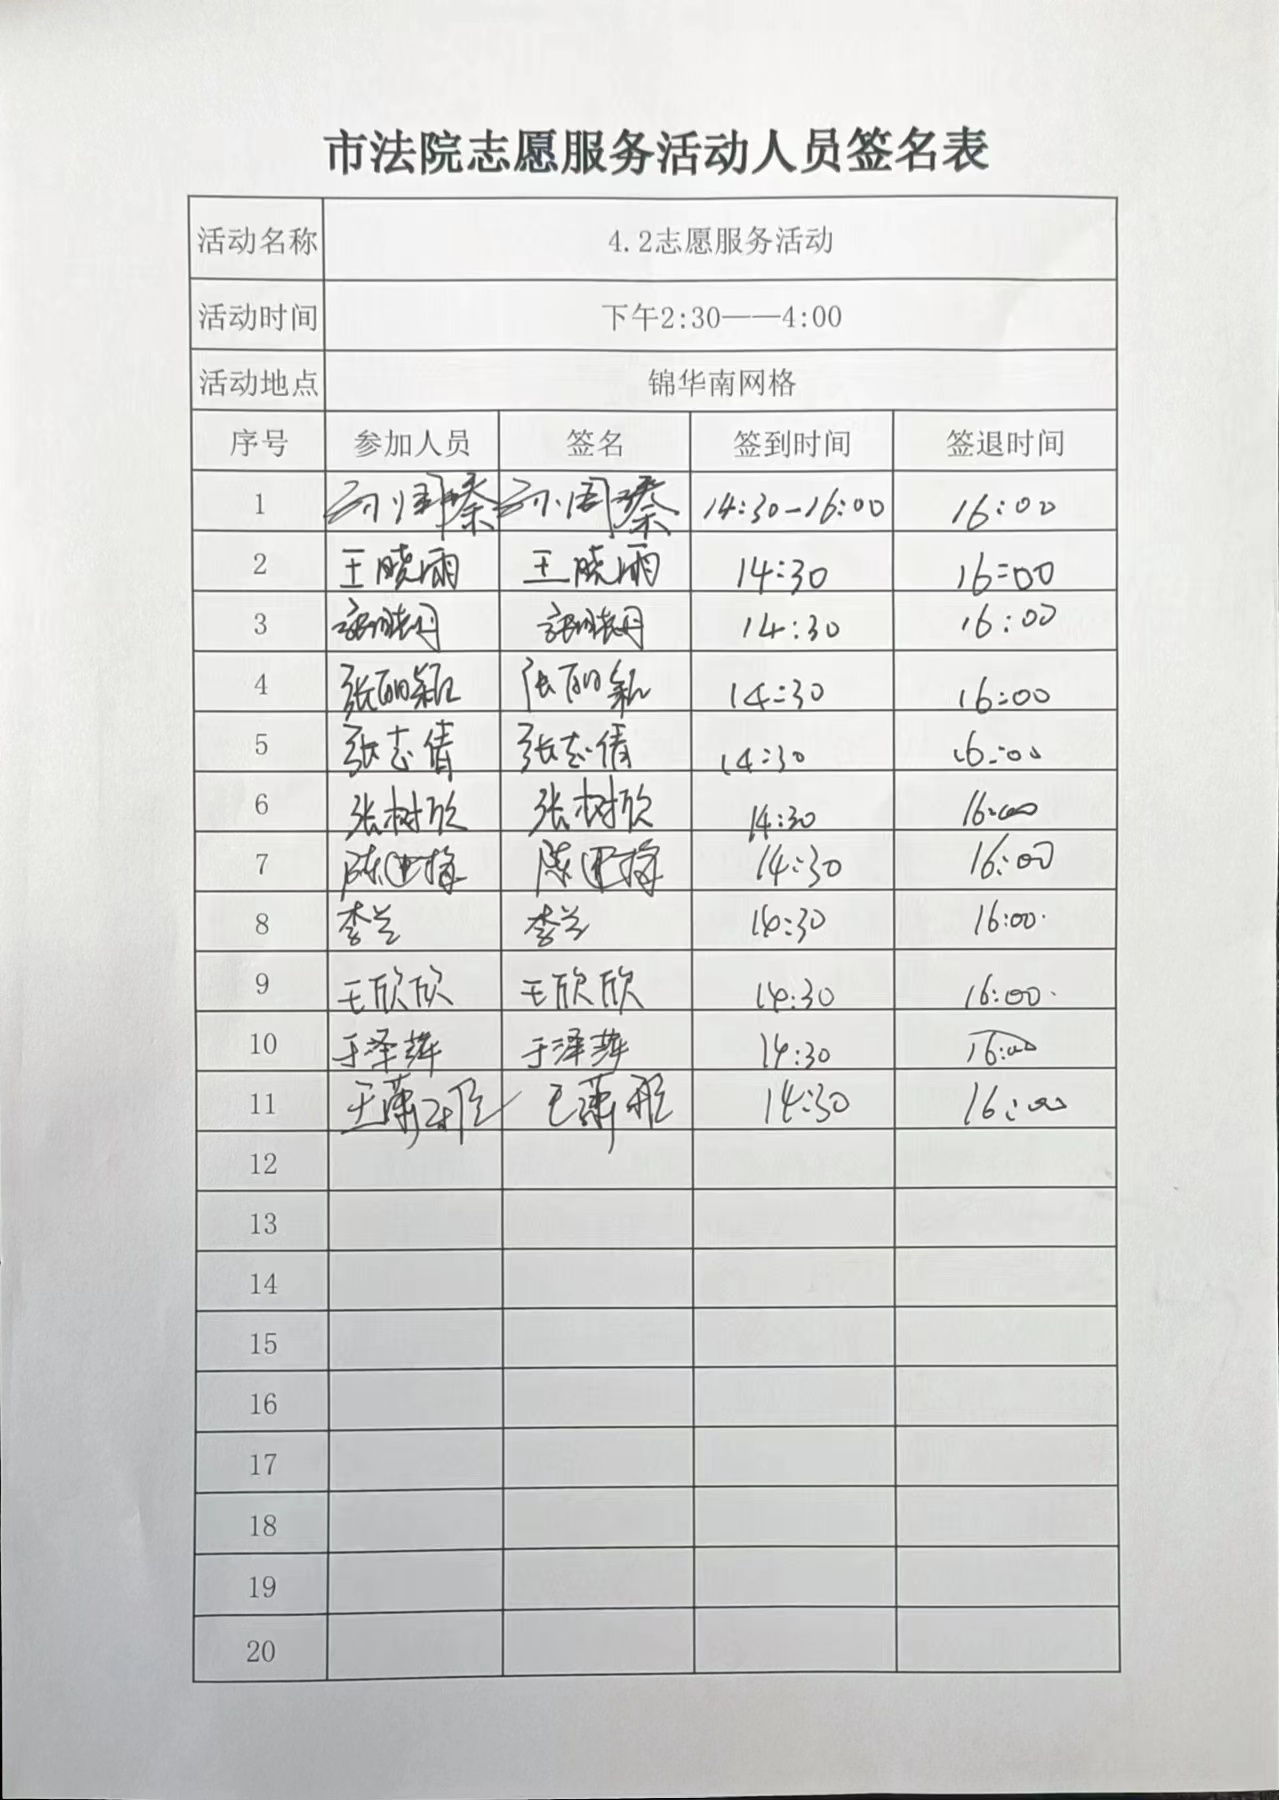 市法院志愿服务活动人员签名表
活动名称 4.2志愿服务活动
活动时间 下午2:30——4:00
活动地点 锦华南网格
序号 参加人员 签名 签到时间 签退时间
1 14:30-16:00 16:00
2 王晓雨 王晓雨 14:30 16:00
3 14:30 16:00
4 张丽颖 张丽颖 14:30 16:00
5 张志倩 张志倩 14:30 16:00
6 张树欣 张树欣 14:30 16:00
7 14:30 16:00
8 李兰 李兰 14:30 16:00
9 王欣欣 王欣欣 14:30 16:00
10 于泽萍 于泽萍 14:30 16:00
11 14:30 16:00
12
13
14
15
16
17
18
19
20